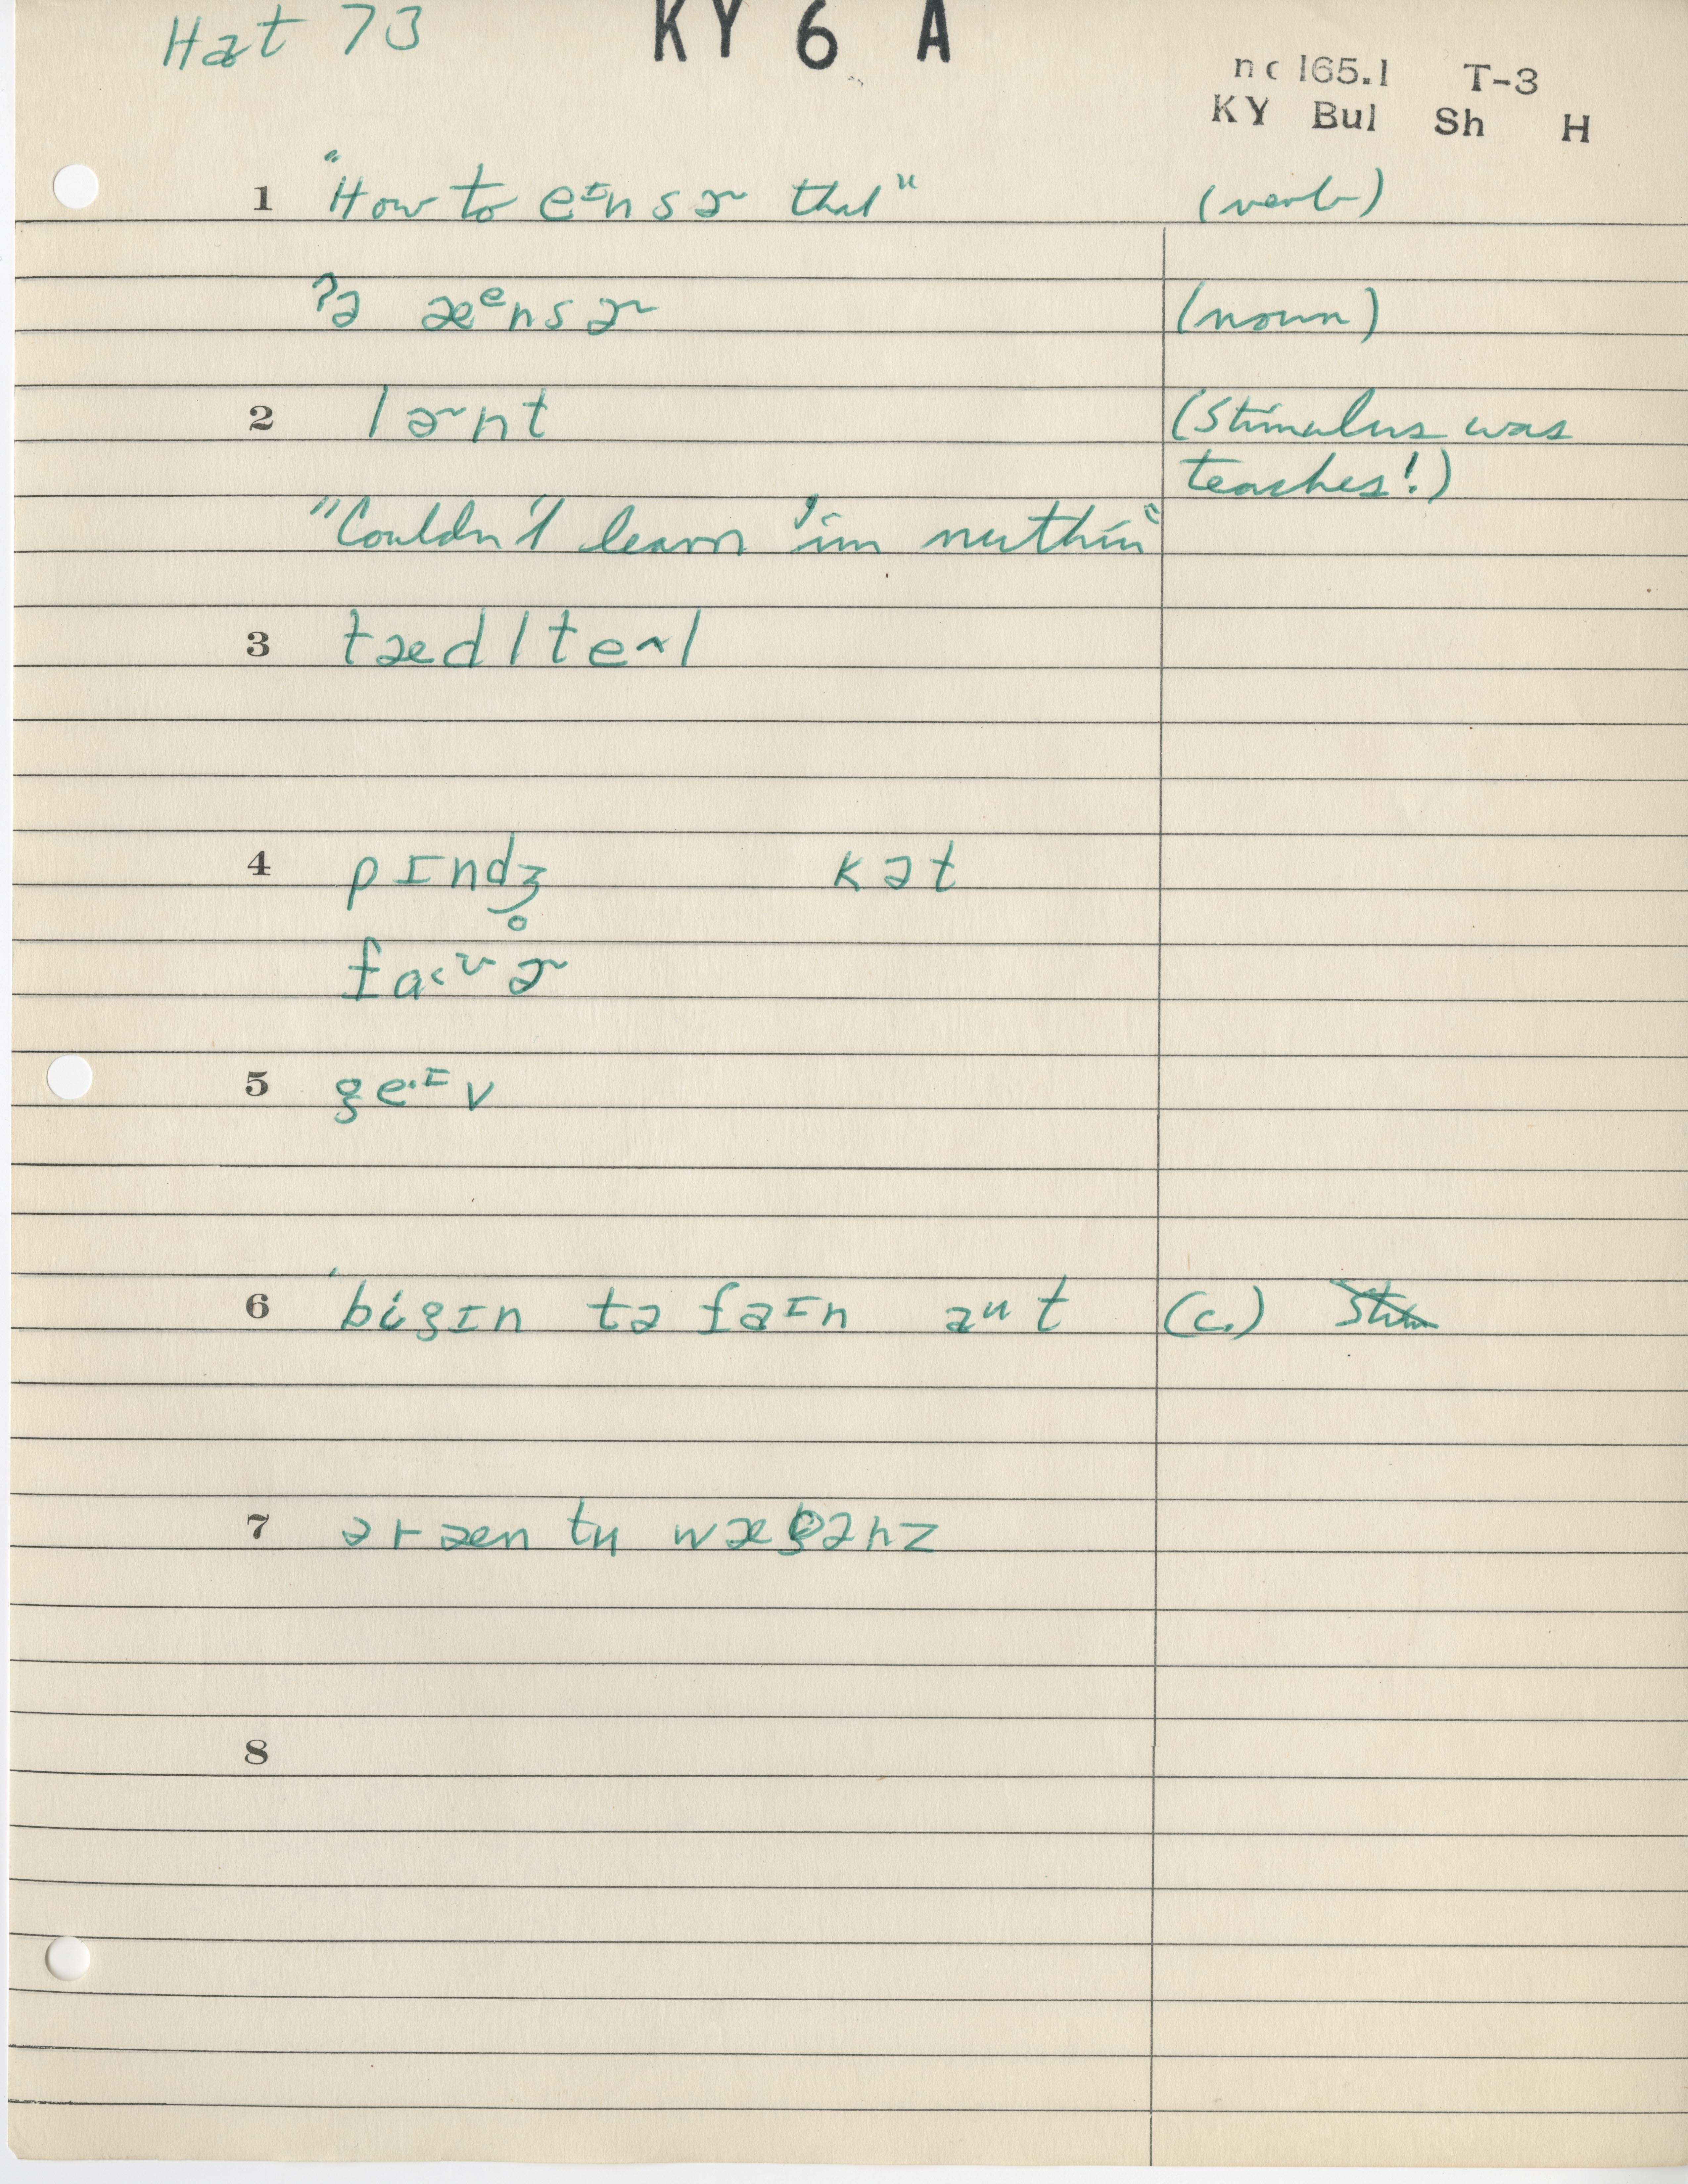 Hat 73 KY 6 A
nc 165.1 T-3
KY Bul Sh H
1 "How to eᶦnsɚ that" (verb)
ʔə æᵉnsɚ (noun)
2 lɚnt (Stimulus was
teaches!)
"Couldn't learn 'im nuthin"
3 tædlteɚl
4 pɪndʒ̥ kət
fa˂ᶹɚ
5 geˑᶦv
6 bigɪn tə faɪn aut (c.)
7 əræn tu wægənz
8